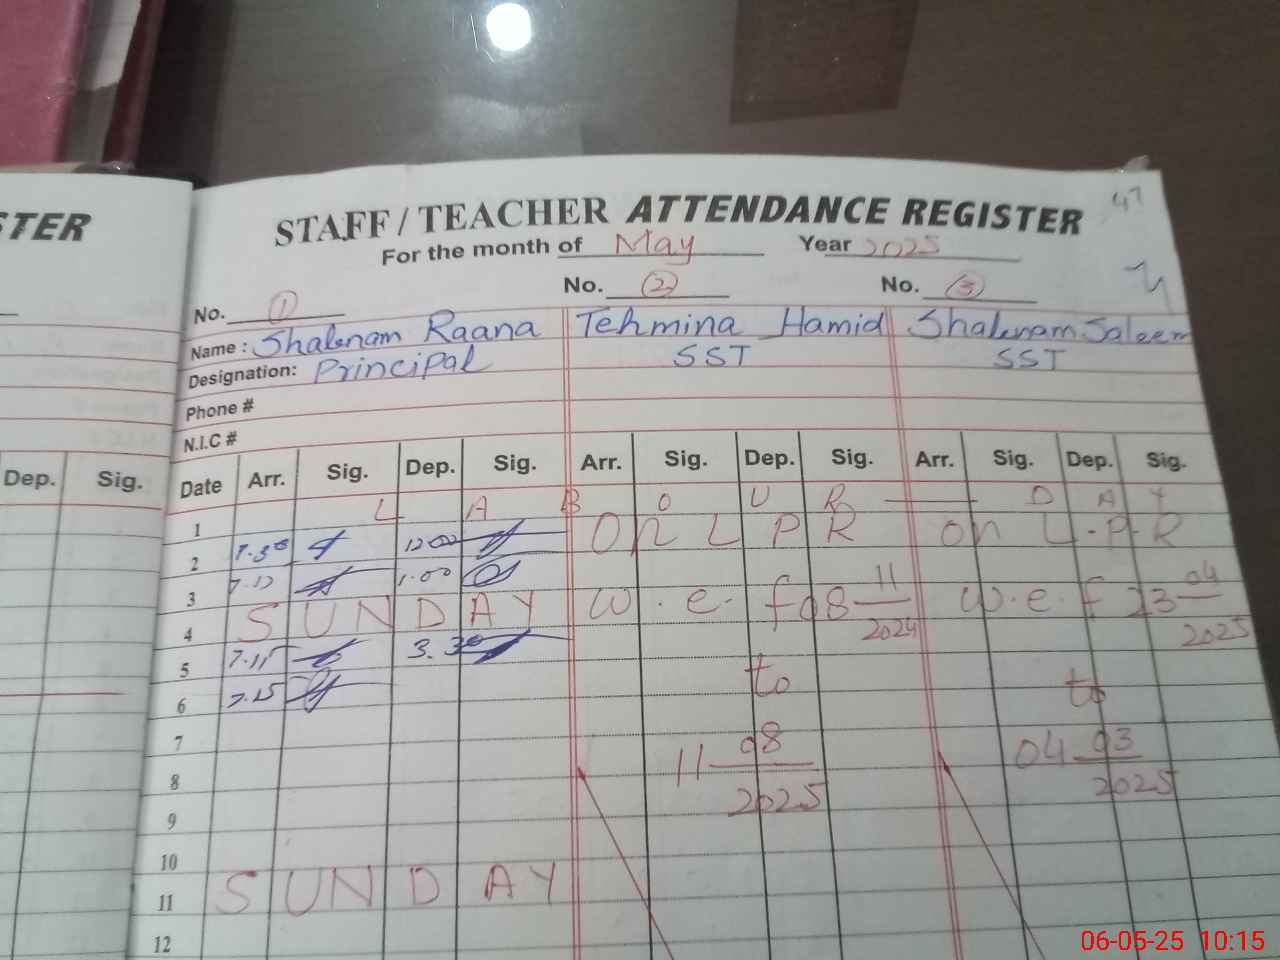 STER
STAFF / TEACHER ATTENDANCE REGISTER 47
For the month of May Year 2025
No. 1 No. 2 No. 3
Name : Shabnam Raana Tehmina Hamid Shabnam Saleem
Designation: Principal SST SST
Phone #
N.I.C #
Dep. Sig. Date Arr. Sig. Dep. Sig. Arr. Sig. Dep. Sig. Arr. Sig. Dep. Sig.
1 L A B O U R — D A Y
2 7.30 12.00 On L P R On L.P.R
3 1.00
4 S U N D A Y w.e.f 08 11 2024 w.e.f 23 04 2025
5 7.15 3.30
6 7.15 to to
7
8 11 08 2025 04 03 2025
9
10
11 S U N D A Y
12
06-05-25 10:15